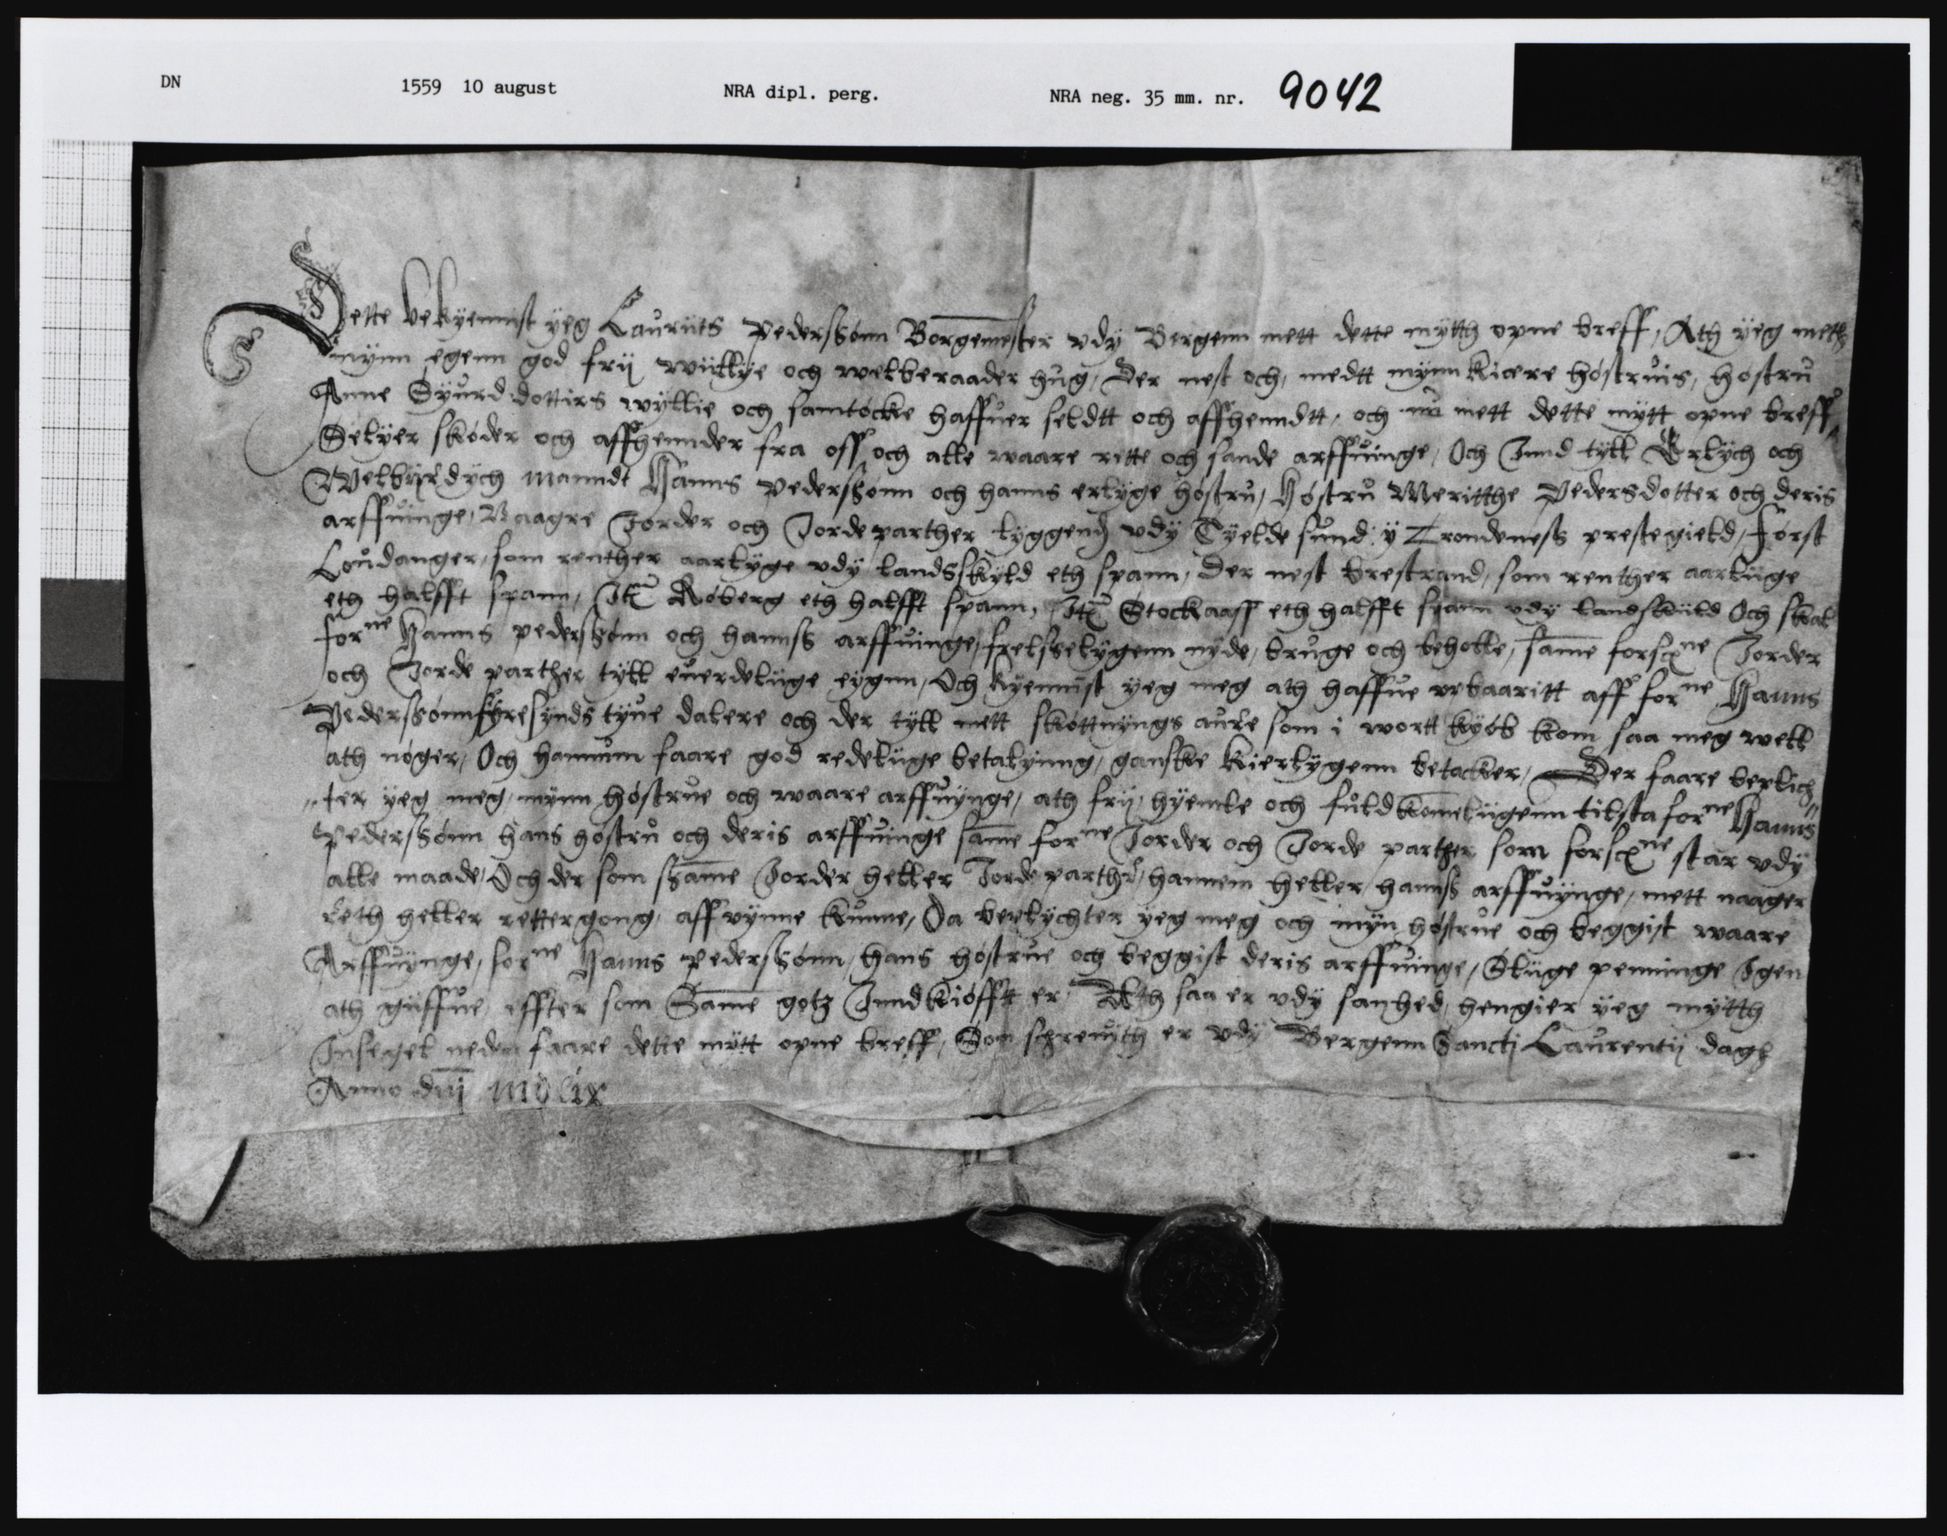 DN 1559 10 august NRA dipl. perg. NRA neg. 35 mm. nr. 9042
Dette bekyennist yeg Lauritts Pederssønn Borgemester vdy Bergenn mett dette mytth opne breff, Ath yeg meth
mynn egenn god frij willye och welberaader hug, Der nest och, medtt mynn kiere høstruis, høstru
Anne Syurd dottirs wyllie och samtøcke haffuer seldtt och affhenndtt, och nu mett dette mytt opne breff
Selyer skøder och affhennder fra oss och alle waare rette och sande arffuinge, Och Innd tyll Erlych och
Welbyrdych manndt Hanns Pederssønn och hanns erlyge høstru, Høstru Meritthe Pedersdotter och deris
arffuinge, Naagre Jorder och Jorde parther lyggend vdy Tyelde sund y Trondeness prestegield, først
Loudanger, som renther aarlyge vdy landsskyld eth spann, Der nest brestrand, som renther aarlige
eth halfft spann, Itm Røberg eth halfft spann, Itm Stockaass eth halfft spann vdy landskyld Och skal
forne Hanns pederssønn och hannss arffuinge, frelsselygenn nyde, bruge och beholle, same forscne Jorder
och Jorde parther tyll euerdelige eygnn, Och kyennist yeg meg ath haffue vpbaaritt aff forne Hanns
Pederssønn fyresynds tyue dalere och der tyll mett skøttnyngs aure som i wortt kyøb kom saa meg well
ath nøger, Och hannum faare god redelige betalyinng, ganske kierlygenn betacker, Der faare beplich
ter yeg meg, mynn høstrue och waare arffuynge, ath frij, hyemle och fuldkomeligenn tilsta forne Hanns
pederssønn hans høstru och deris arffuinge same forne Jorder och Jorde parther som forscne star vdy
alle maade, Och der som same Jorder heller Jorde parther, hannem heller hannss arffuynge, mett naager
reth heller rettergong, aff vynne kunne, Da beplychter yeg meg och myn høstrue och beggist waare
Arffuynge, forne Hanns pederssønn, hans høstrue och beggist deris arffuinge, Slige penninge Igen
ath giffue, effter som Same gotz Inndkiøfftt er, Ath saa er vdy sanhed, hengier yeg mytth
Insegel neden faare dette mytt opne breff, Som schreuith er vdy Bergenn Sancti Laurentij dagh
Anno dni mdlix